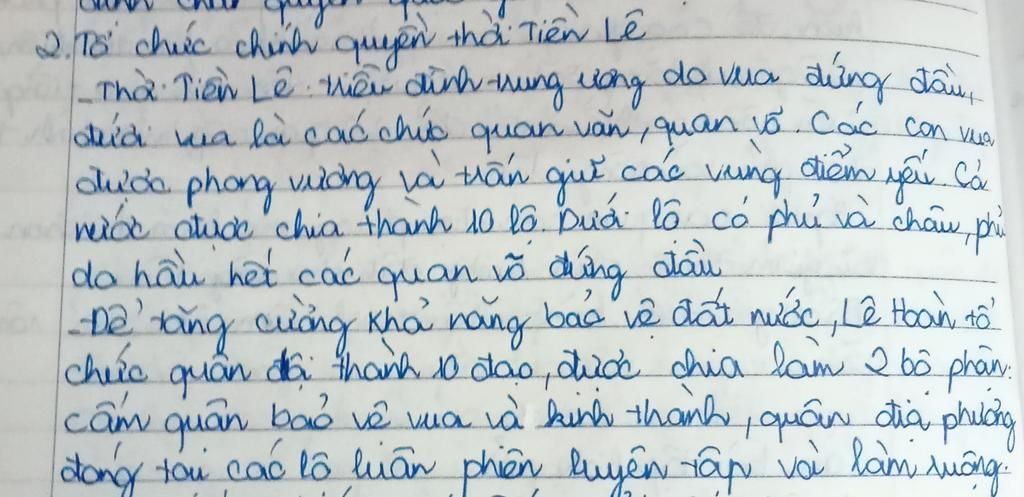 2. Tổ chức chính quyền thời Tiền Lê
- Thời Tiền Lê: triều đình trung ương do vua đứng đầu,
dưới vua là các chức quan văn, quan võ. Các con vua
được phong vương và trấn giữ các vùng điểm yếu. Cả
nước được chia thành 10 lộ. Dưới lộ có phủ và châu, phủ
do hầu hết các quan võ đứng đầu
- Để tăng cường khả năng bảo vệ đất nước, Lê Hoàn tổ
chức quân đội thành 10 đạo, được chia làm 2 bộ phận:
cấm quân bảo vệ vua và kinh thành, quân địa phương
đóng tại các lộ luân phiên luyện tập và làm ruộng.